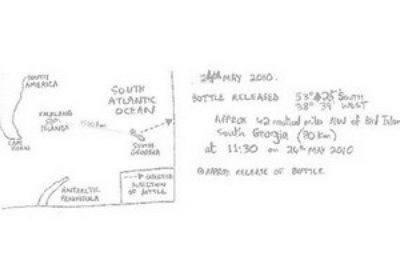 SOUTH
AMERICA
SOUTH
ATLANTIC
OCEAN
FALKLAND
ISLANDS
CAPE
HORN
SOUTH
GEORGIA
ANTARCTIC
PENINSULA
DIRECTION
OF BOTTLE
24th MAY 2010.
BOTTLE RELEASED 53° 25' SOUTH
38° 39' WEST
APPROX 42 nautical miles NW of Bird Island
South Georgia (80km)
at 11:30 on 24th MAY 2010
APPROX RELEASE OF BOTTLE